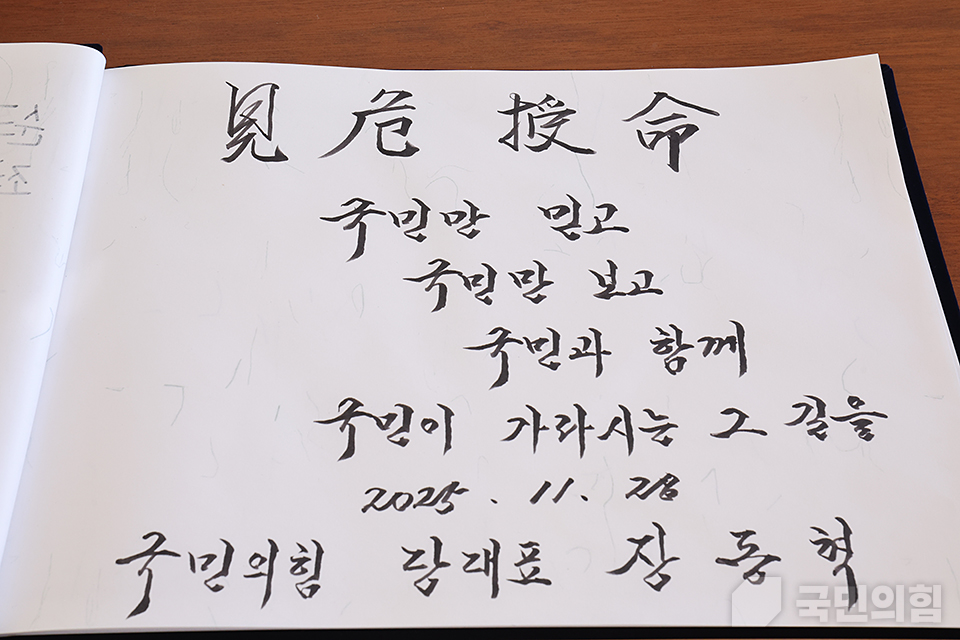 見危授命
국민만 믿고
국민만 보고
국민과 함께
국민이 가라시는 그 길을
2025. 11. 28
국민의힘 당대표 장동혁
국민의힘